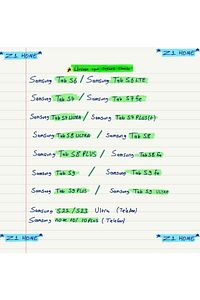 Z1 HOME Z1 HOME
Choose your
Samsung Tab S6 / Samsung Tab S6 LTE
Samsung Tab S7 / Samsung Tab S7 fe
Samsung Tab S7 ULTRA / Samsung Tab S7 PLUS(+)
Samsung Tab S8 ULTRA / Samsung Tab S8
Samsung Tab S8 PLUS / Samsung Tab S8 fe
Samsung Tab S9 / Samsung Tab S9 fe
Samsung Tab S9 PLUS / Samsung Tab S9 ULTRA
Samsung S22 / S23 Ultra (Telefon)
Samsung NOTE 10/10PLUS (Telefon)
Z1 HOME Z1 HOME